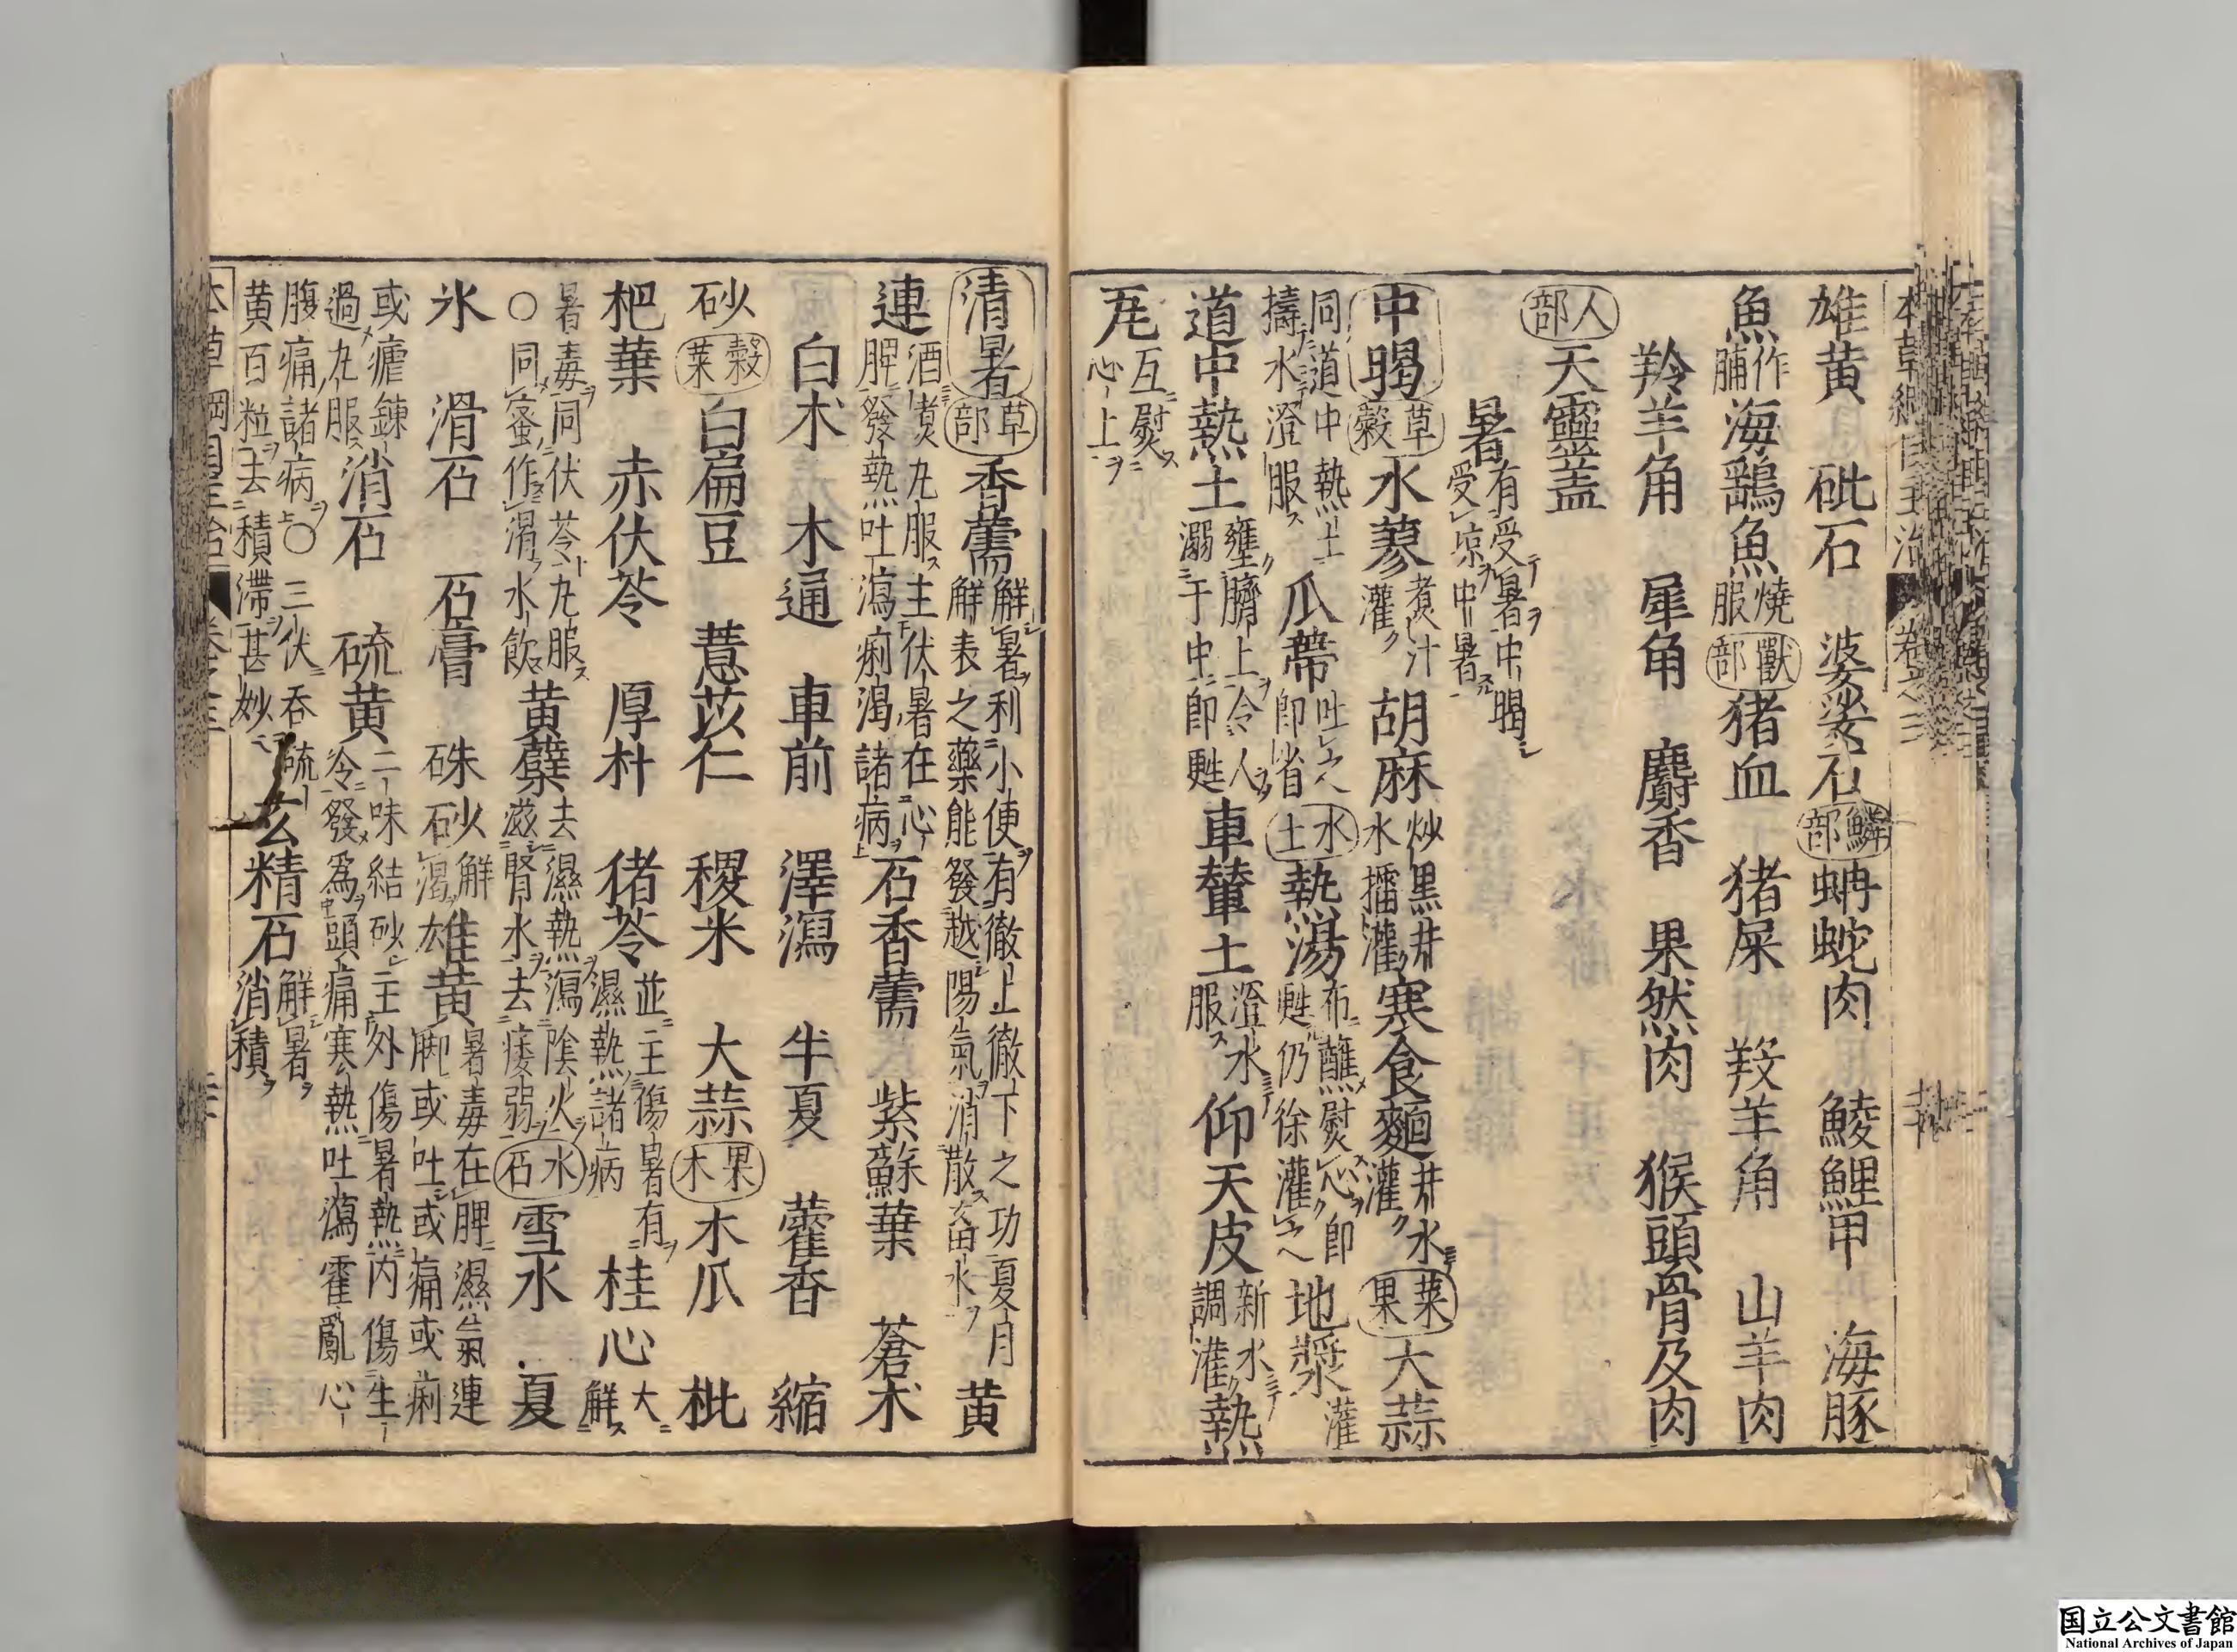 本草綱目主治 卷之三
雄黄 砒石 婆娑石 鱗部 蚺蛇肉 鯪鯉甲 海豚
魚 作脯 海鷂魚 燒服 獸部 猪血 猪屎 羖羊角 山羊肉
羚羊角 犀角 麝香 果然肉 猴頭骨及肉
人部 天靈蓋
暑 有受暑中暍受涼中暑
中暍 草穀 水蓼 煮汁灌 胡麻 炒黒井水擂灌 寒食麵 井水灌 菜果 大蒜
同道中熱土擣水澄服 瓜蔕 吐之即省 水土 熱湯 布蘸熨心即甦仍徐灌之 地漿 灌
道中熱土 壅臍上令人溺于中即甦 車輦土 澄水服 仰天皮 新水調灌 熱
瓦 互熨心上
清暑 草部 香薷 解暑利小使有徹上徹下之功夏月解表之藥能發越陽氣消散畜水 黄
連 酒煑丸服主伏暑在心脾發熱吐瀉痢渴諸病 石香薷 紫蘇葉 蒼朮
白朮 木通 車前 澤瀉 半夏 藿香 縮
砂 穀菜 白扁豆 薏苡仁 稷米 大蒜 果木 木瓜 枇
杷葉 赤伏苓 厚朴 猪苓 並主傷暑有濕熱諸病 桂心 大解
暑毒同伏苓丸服○同蜜作渴水飲 黄蘗 去濕熱瀉陰火滋腎水去痿弱 水石 雪水 夏
氷 滑石 石膏 硃砂 解渴 雄黄 暑毒在脾濕氣連脚或吐或痛或痢
或瘧錬過丸服 消石 硫黄 二味結砂主外傷暑熱内傷生冷發爲頭痛寒熱吐瀉霍亂心
腹痛諸病○三伏吞硫黄百粒去積滯甚妙 玄精石 解暑消積
本草綱目主治 卷之三
国立公文書館
National Archives of Japan